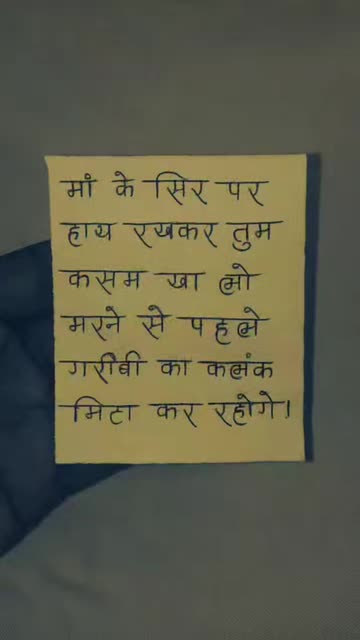 मां के सिर पर
हाथ रखकर तुम
कसम खा लो
मरने से पहले
गरीबी का कलंक
मिटा कर रहोगे।